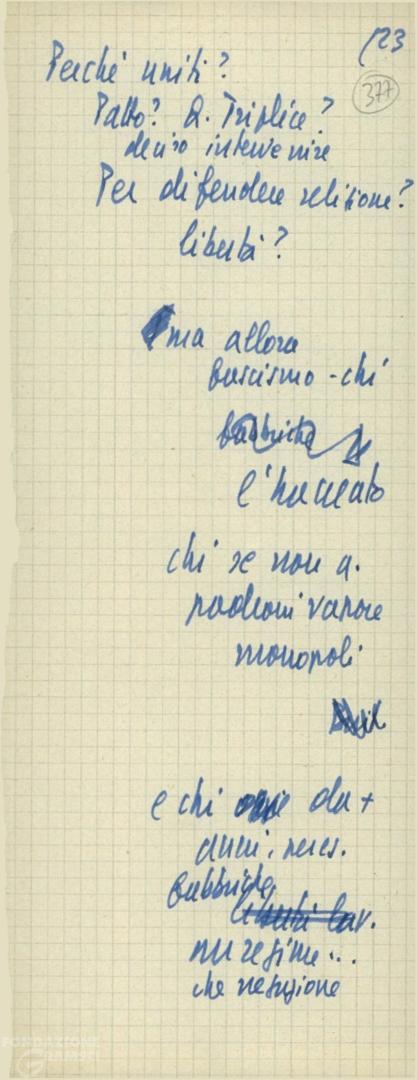 123
377
Perché uniti?
Patto? Q. Triplice?
deciso intervenire
Per difendere religione?
libertà?
ma allora
fascismo - chi
fabbriche
l'ha creato
chi se non q.
padroni vapore
monopoli
e chi oggi da +
anni, ness.
fabbriche
lav.
un regime...
che nessuno
FONDAZIONE
GRAMSCI